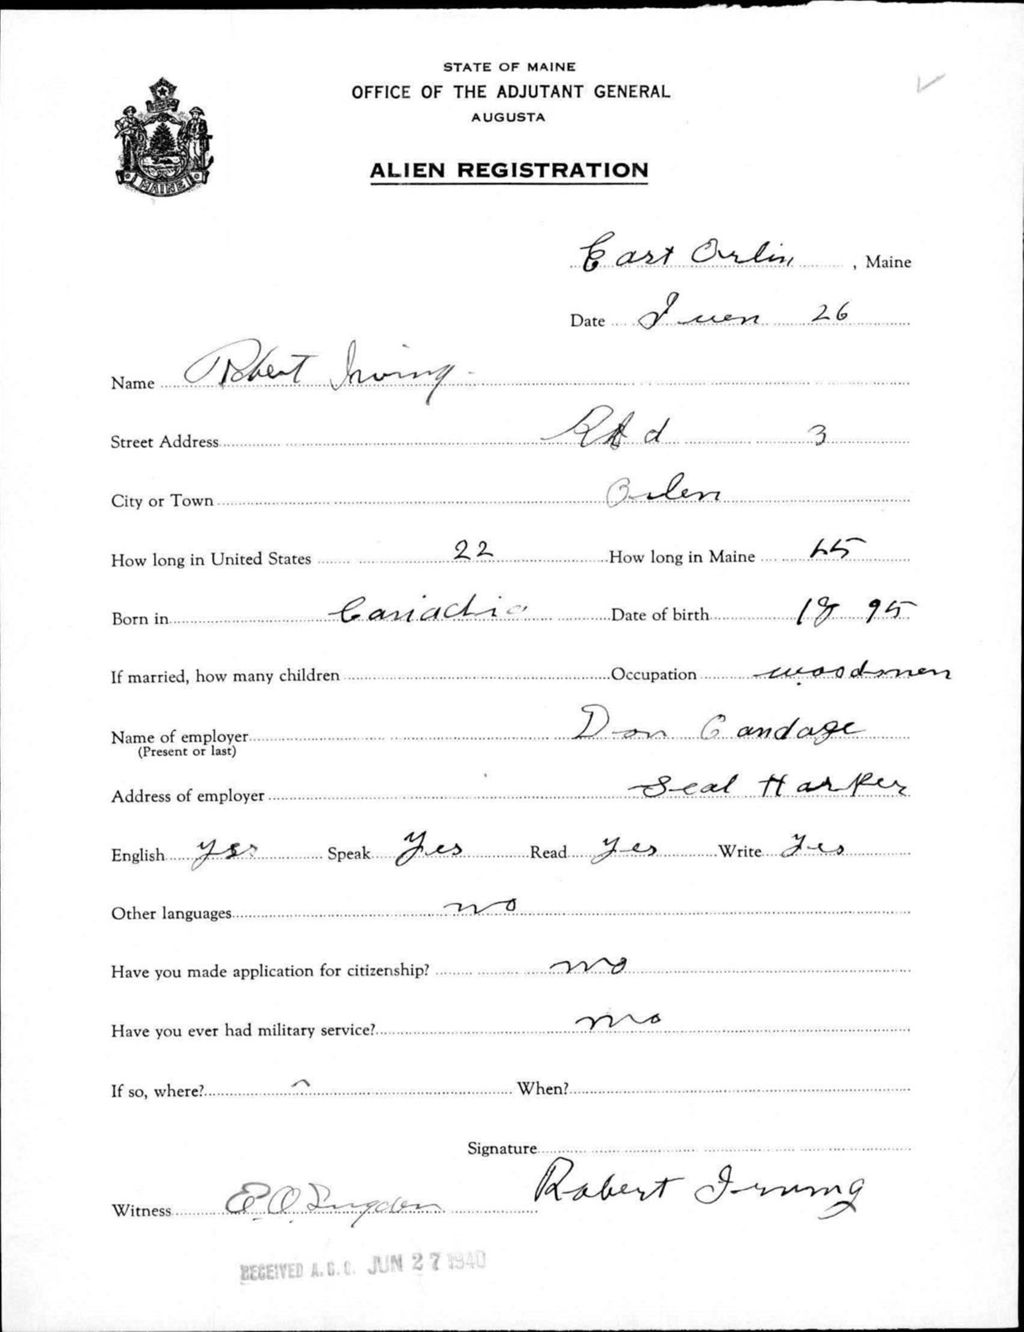 STATE OF MAINE
OFFICE OF THE ADJUTANT GENERAL
AUGUSTA
MAINE
ALIEN REGISTRATION
East Orlin, Maine
Date Juen 26
Name Robert Irving
Street Address R d 3
City or Town Orlen
How long in United States 22 How long in Maine
Born in Canadia Date of birth 1895
If married, how many children Occupation woodsmen
Name of employer Don Candage
(Present or last)
Address of employer Seal Harber
English yes Speak Yes Read Yes Write Yes
Other languages no
Have you made application for citizenship? no
Have you ever had military service? no
If so, where? When?
Signature
Robert Irving
Witness E. O. Sugden
RECEIVED A. G. O. JUN 27 1940